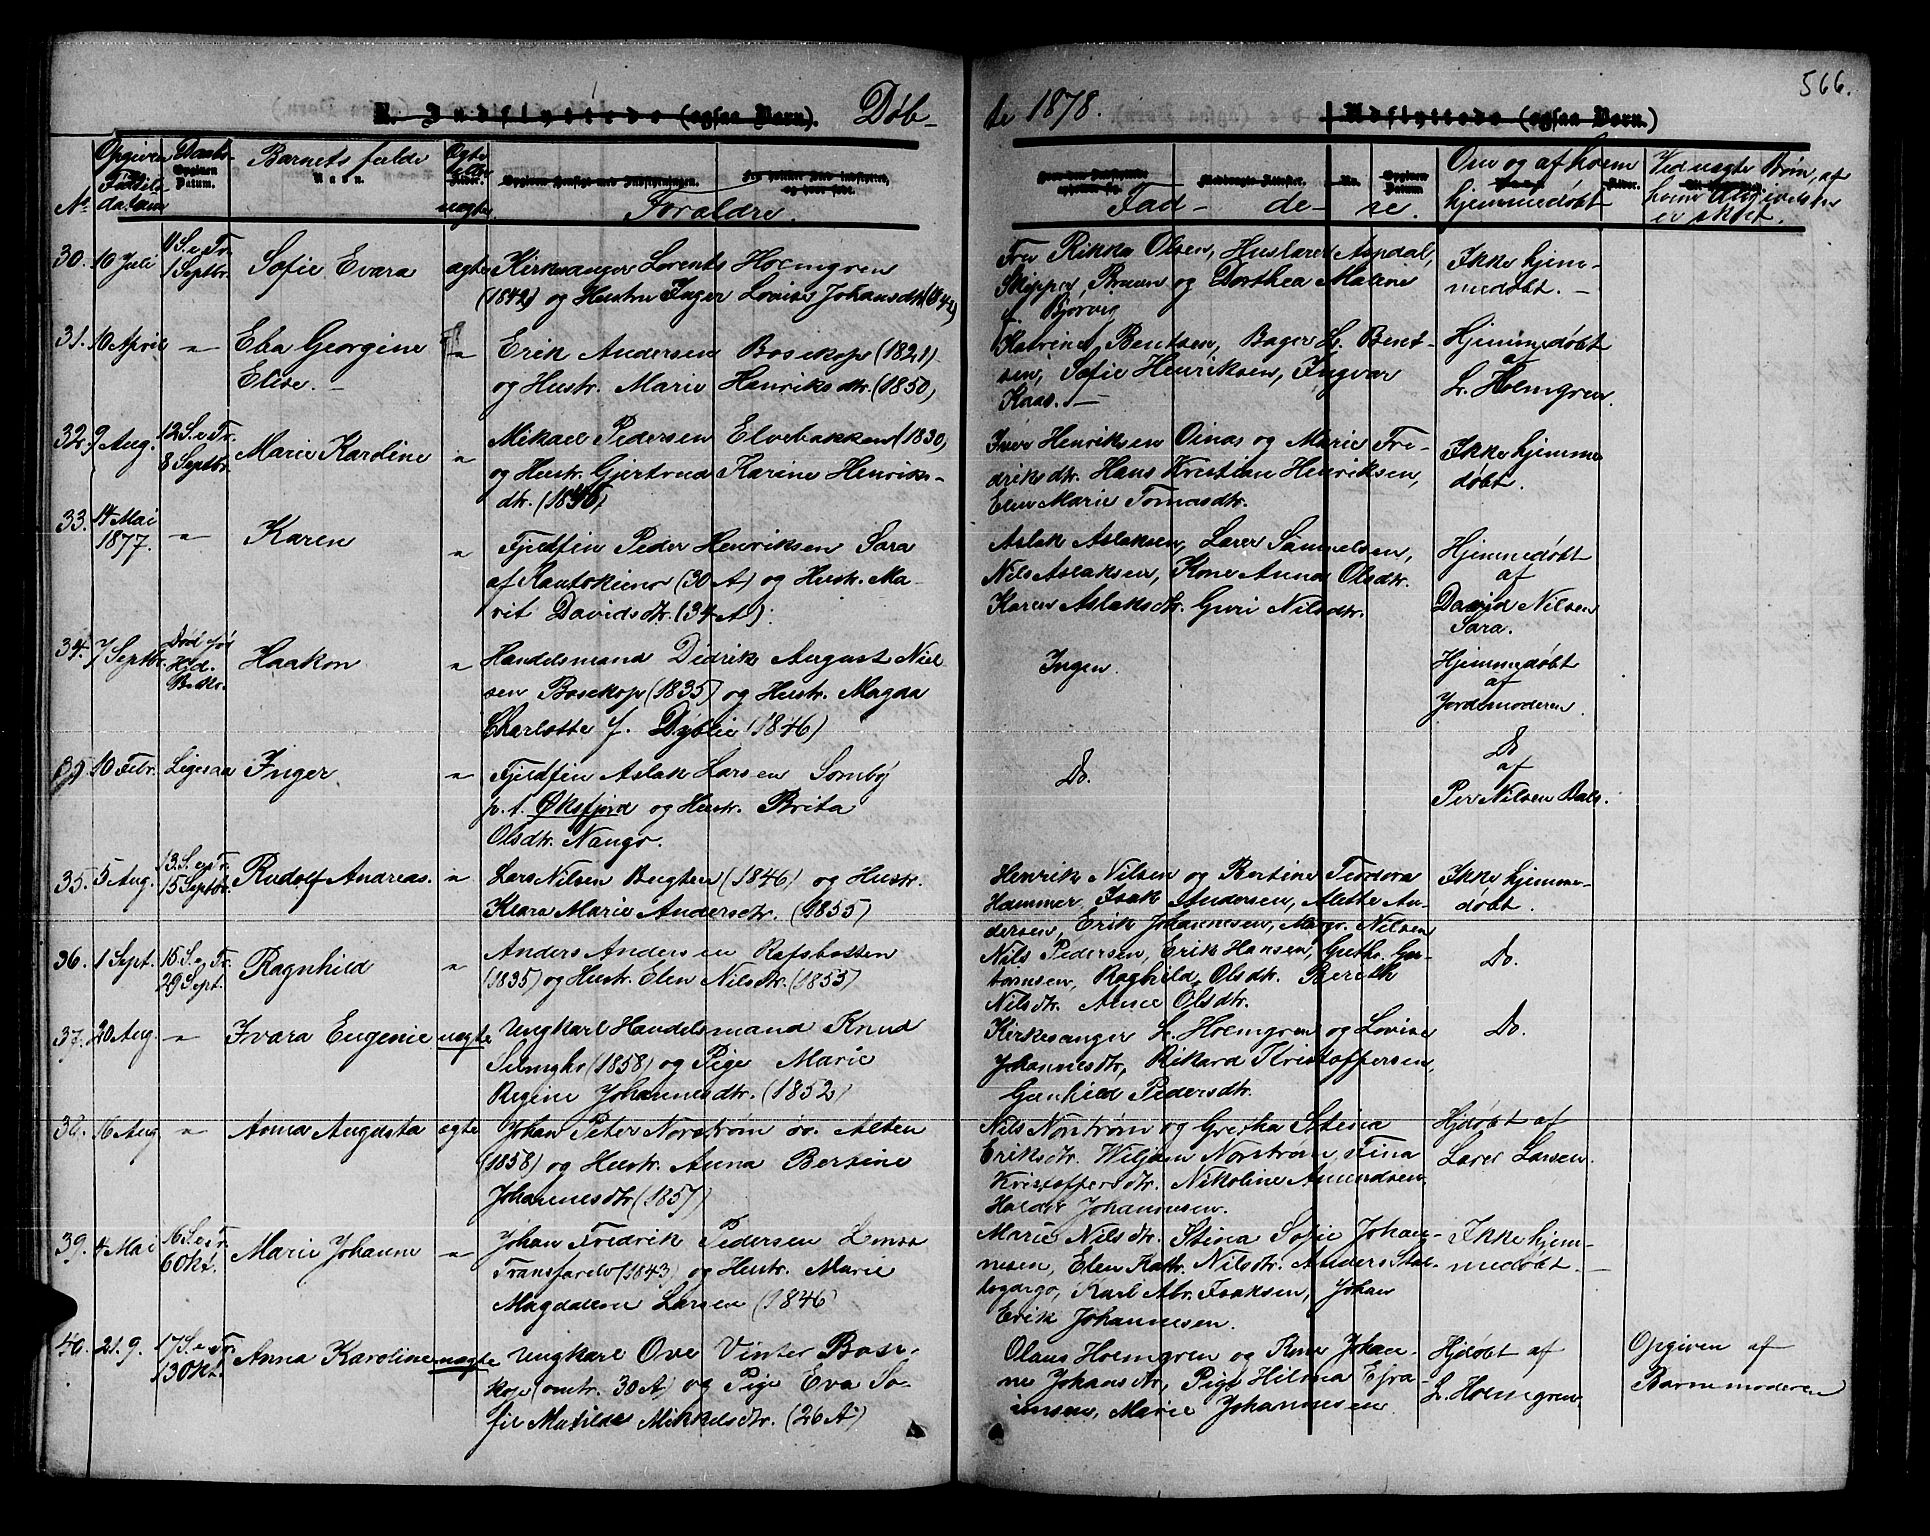 566.
K. Indflyttede (ogsaa Børn). Døb-
te 1878. Udflyttede (ogsaa Børn.)
No. Opgiven Fødsels-datum Daabs-Datum. Barnets fulde Navn. Ægte eller uægte Forældre.
Fad- de- re. Om og af hvem hjemmedøbt Ved uægte Børn, af hvem Angivelsen er skeet.
30. 10 Juli 11 S. e. Tr. 1 Septbr. Sofie Evara ægte Kirkesanger Lorents Holmgren
(1842) og Hustru Inger Lovise Johansdtr.
Fru Rikka Olsen, Huslærer Aspdal,
Skipper Bruun og Dorthea Maline
f. Bjørvig
Ikke hjem-
medøbt. -
31. 10 April " Eba Georgine
Elise. - " Erik Andersen Bosekop (1821)
og Hustr. Marie Henriksdtr. (1850)
Katrine Bentsen, Bager L. Bent-
sen, Sofie Henriksen, Ingvar
Kaas. -
Hjemmedøbt
af
L. Holmgren.
32. 9 Aug. 12 S. e. Tr. 8 Septbr. Marie Karoline " Mikael Pedersen Elvebakken (1830)
og Hustr. Gjertrud Karine Henriks-
dtr.
Iver Henriksen Oinas og Marie Fre-
driksdtr. Hans Kristian Henriksen,
Elen Marie Tomasdtr.
Ikke hjemme
døbt.
33. 14 Mai
1877. " Karen " Fjeldfin Peder Henriksen Sara
af Kautokeino (30 A) og Hustr. Ma-
rit Davidsdtr. (34 A).
Aslak Aslaksen, Lærer Samuelsen,
Nils Aslaksen, Kone Anna Olsdtr.
Karen Aslaksdtr. Guri Nilsdtr.
Hjemmedøbt
af
David Nilsen
Sara.
34. 7 Septbr. Død før
Hd.
Bekr. Haakon " Handelsmand Didrik August Niel
sen Bosekop (1835) og Hustr. Magda
Charlotte f. Dyblie (1846)
Ingen
Hjemmedøbt
af
Jordemoderen.
10 Febr. Ligesaa Inger " Fjeldfin Aslak Larsen Somby
p. t. Øksfjord og Hustr. Brita
Olsdtr. Nango.
Do.
Do
af
Per Nilsen Bals.
35. 5 Aug. 13. S. e. Tr. 15 Septbr. Rudolf Andreas. " Lars Nilsen Bugten (1846) og Hustr.
Klara Marie Andersdtr. (1855)
Henrik Nilsen og Bertine Teodora
Hammer, Isak Andersen, Alette An-
dersen, Erik Johannesen, Margr. Nilsen
Ikke hjemme-
døbt.
36. 1 Sept. 15 S. e. Tr. 29 Sept. Ragnhild " Anders Andersen Rafsbotten
(1835) og Hustr. Elen Nilsdtr. (1853)
Nils Pedersen, Erik Hansen, Grethe Gu-
tormsen, Raghild Olsdtr. Bereth
Nilsdtr. Anne Olsdtr.
Do.
37. 20 Aug. " Ivara Eugenie uægte Ungkarl Handelsmand Knud
(1858) og Pige Marie
Regine Johannesdtr. (1852)
Kirkesanger L. Holmgren og Lovise
Johannesdtr, Rikard Kristoffersen,
Gunhild Pedersdtr.
Do.
38. 16 Aug " Anna Augusta ægte Johan Peter Norstrøm øv. Alten
(1858) og Hustr. Anna Bersine
Johannesdtr (1857)
Nils Norstrøm og Gretha Stina
Eriksdtr. Wiljam Norstrøm Tina
Kristoffersdtr. Nikoline Amundsen,
Haldor Johannesen.
Hjdøbt af
Lærer Larsen.
39. 4 Mai 16 S. e. Tr.
6 Okt. Marie Johanne " Johan Fredrik Pedersen
Transfarelv (1843) og Hustr. Marie
Magdalena Larsen (1846)
Marie Nilsdtr. Stina Sofie Johan-
nesen, Elen Katr. Nilsdtr. Anders
Karl Abr. Isaksen, Johan
Erik Johannesen.
Ikke hjem-
medøbt. -
40. 21. 9. 17 S. e. Tr.
13 Okt. Anna Karoline uægte Ungkarl Ove Vinter Bose-
kop (omtr. 30 A) og Pige Eva So-
fie Matilde Mikkelsdtr. (26 A)
Olaus Holmgren og Kone Johan-
ne Johansdtr, Pige Hilma Efra-
imsen, Marie Johannesen.
Hjdøbt af
L. Holmgren
Opgiven af
Barnemoderen